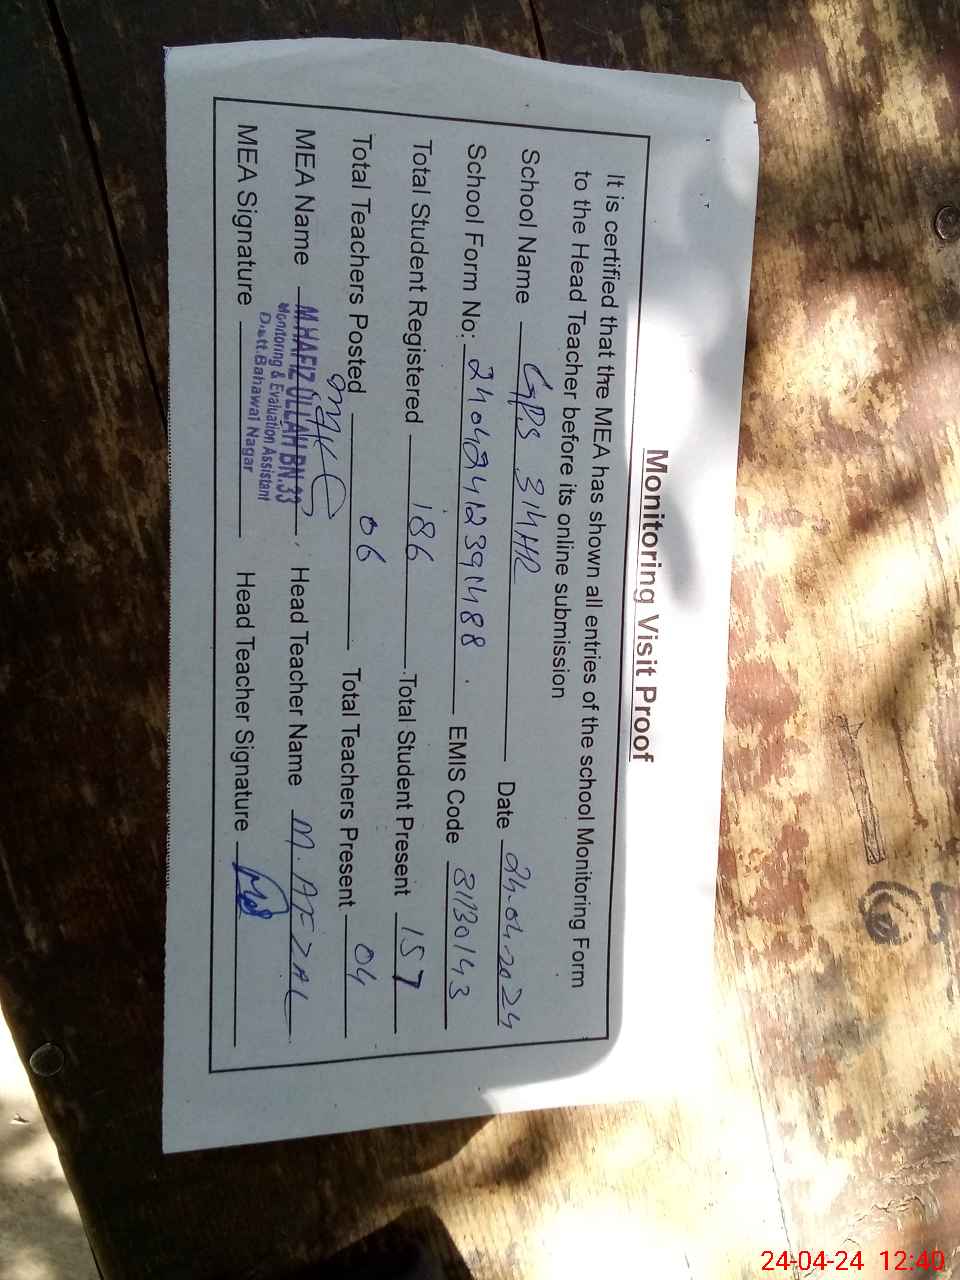 Monitoring Visit Proof
It is certified that the MEA has shown all entries of the school Monitoring Form
to the Head Teacher before its online submission
School Name GPS 314HR Date 24-04-2024
School Form No: 24042412391488 EMIS Code 31130143
Total Student Registered 186 Total Student Present 157
Total Teachers Posted 06 Total Teachers Present 04
MEA Name M.HAFIZ ULLAH BN.33 Head Teacher Name M. AFZAL
Monitoring & Evaluation Assistant
Distt.Bahawal Nagar
MEA Signature Head Teacher Signature
24-04-24 12:40